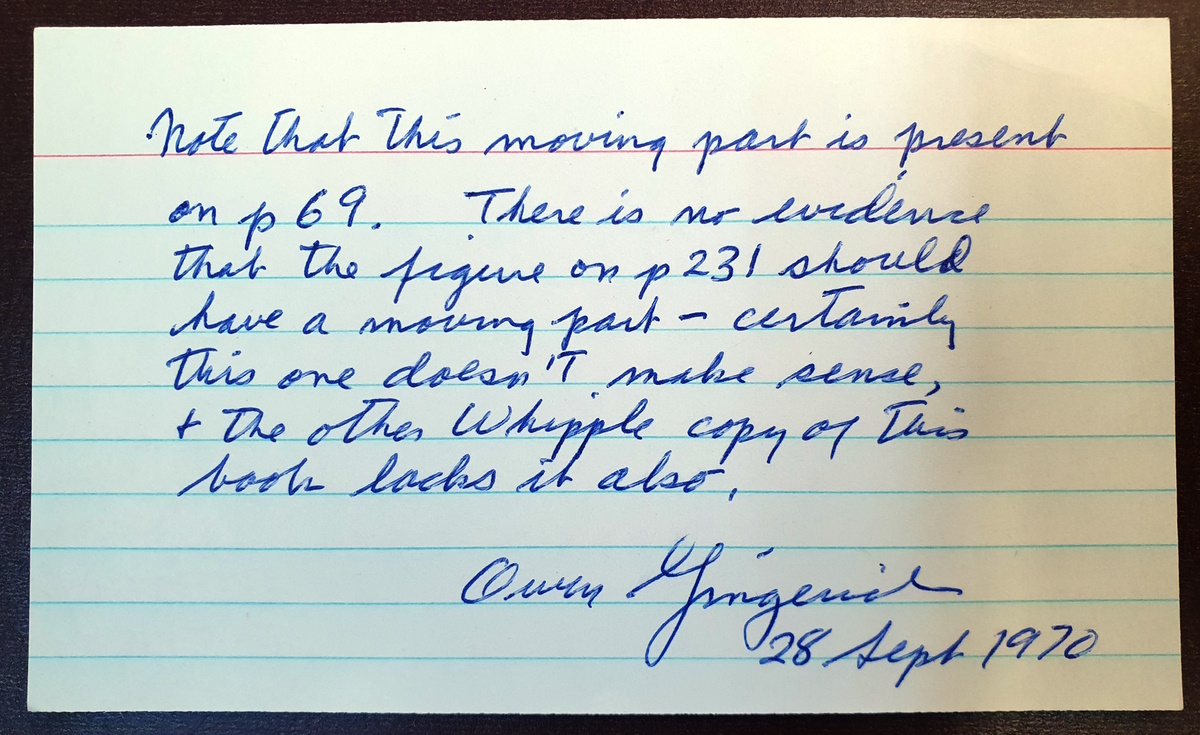 Note that this moving part is present
on p 69. There is no evidence
that the figure on p 231 should
have a moving part – certainly
this one doesn't make sense,
+ the other Whipple copy of this
book lacks it also.
Owen Gingerich
28 Sept 1970